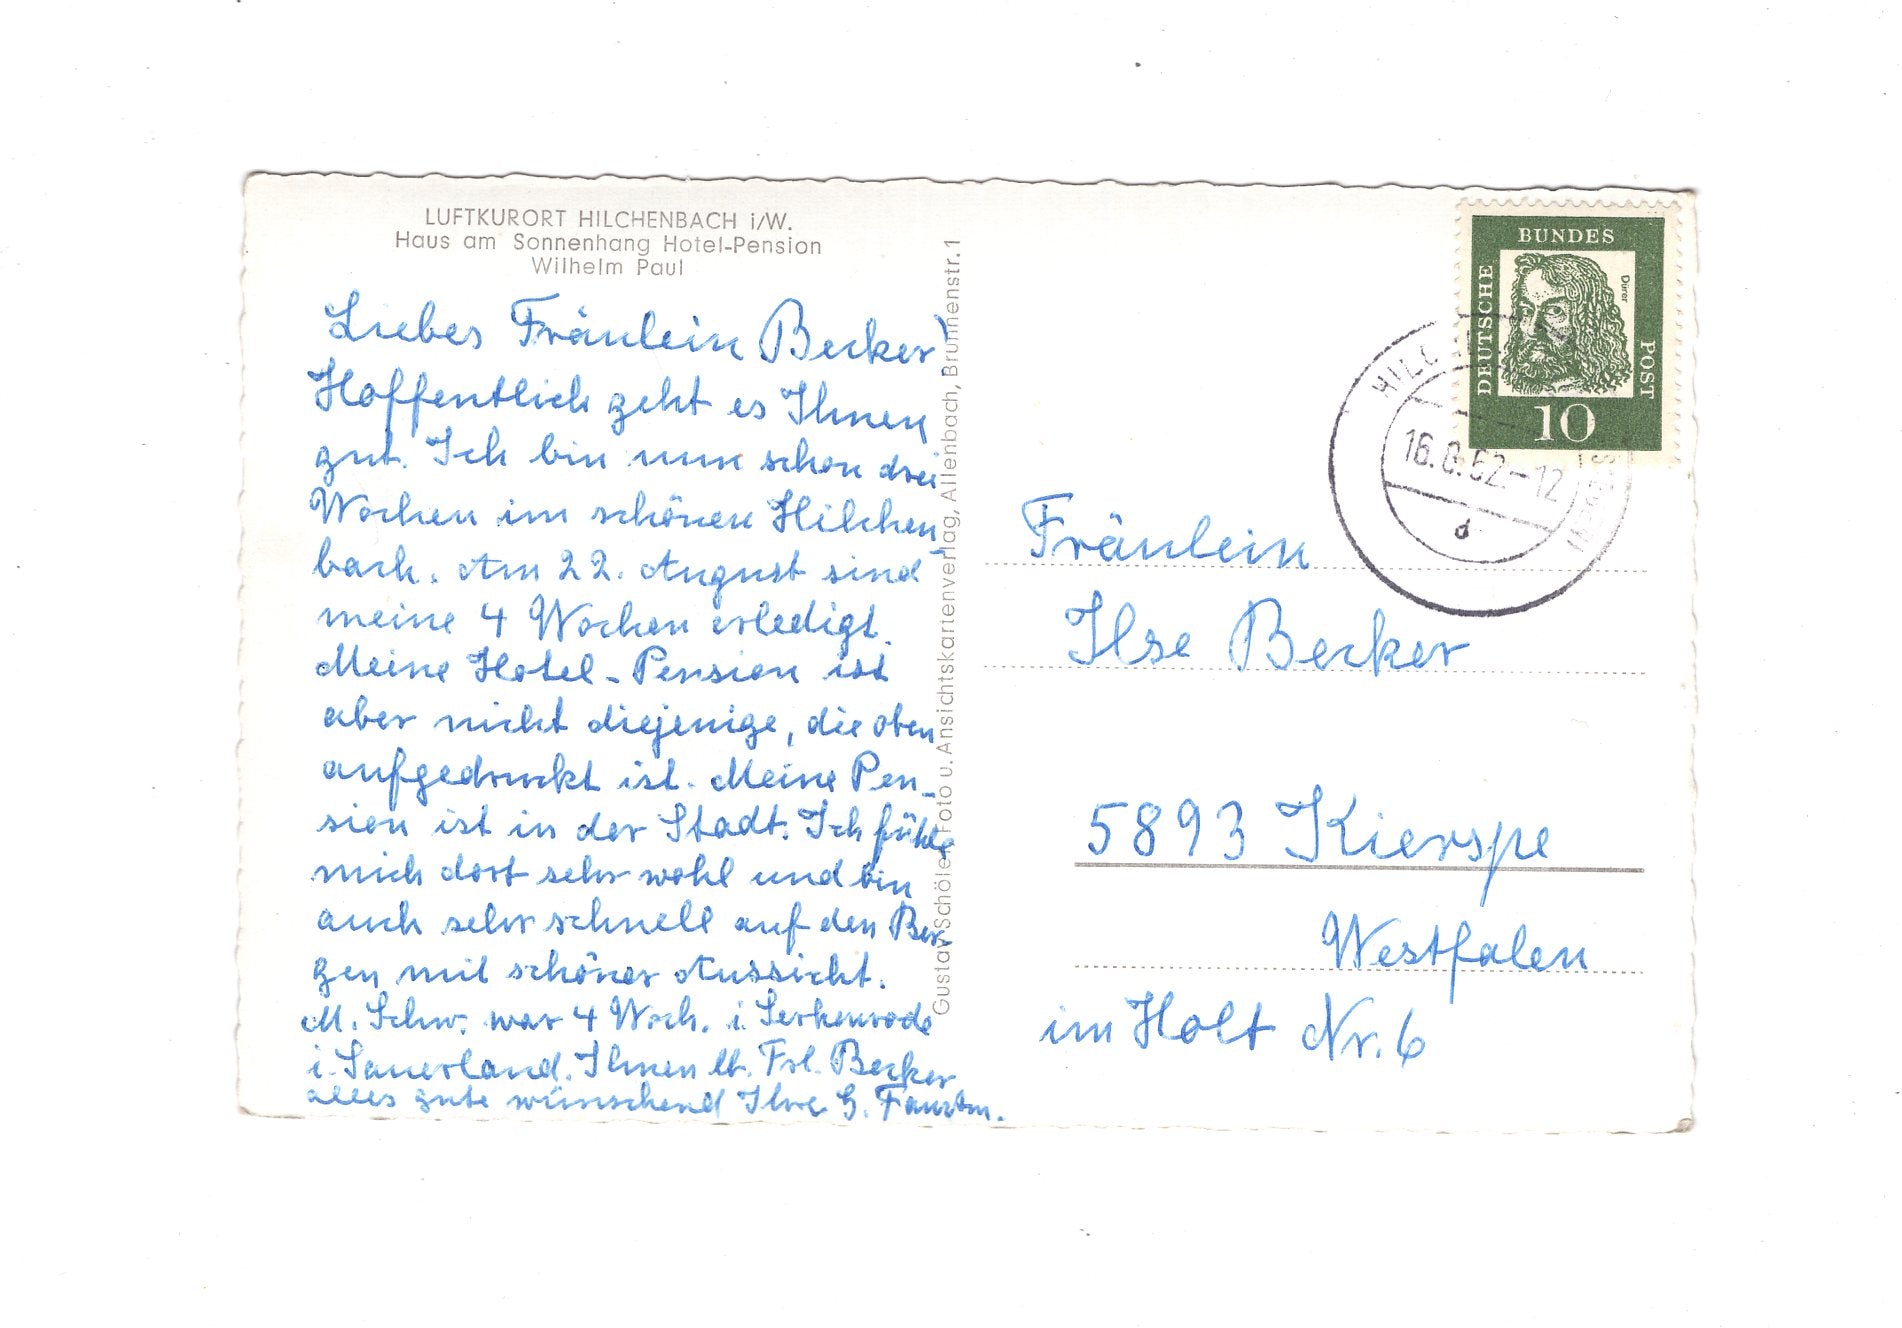 LUFTKURORT HILCHENBACH i/W.
Haus am Sonnenhang Hotel-Pension
Wilhelm Paul
Liebes Fräulein Becker!
Hoffentlich geht es Ihnen
gut. Ich bin nun schon drei
Wochen im schönen Hilchen-
bach. Am 22. August sind
meine 4 Wochen erledigt.
Meine Hotel-Pension ist
aber nicht diejenige, die oben
aufgedruckt ist. Meine Pen-
sion ist in der Stadt. Ich fühle
mich dort sehr wohl und bin
auch sehr schnell auf den Ber-
gen mit schöner Aussicht.
M. Schw. war 4 Woch. i. Serkenrode
i. Sauerland. Ihnen lb. Frl. Becker
alles gute wünschend Ihre G.
Gustav Schöler, Foto u. Ansichtskartenverlag, Allenbach, Brunnenstr. 1
DEUTSCHE
BUNDES
POST
Dürer
10
HILC
16. 8. 62.-12
d
Fräulein
Ilse Becker
5893 Kierspe
Westfalen
im Holt Nr. 6